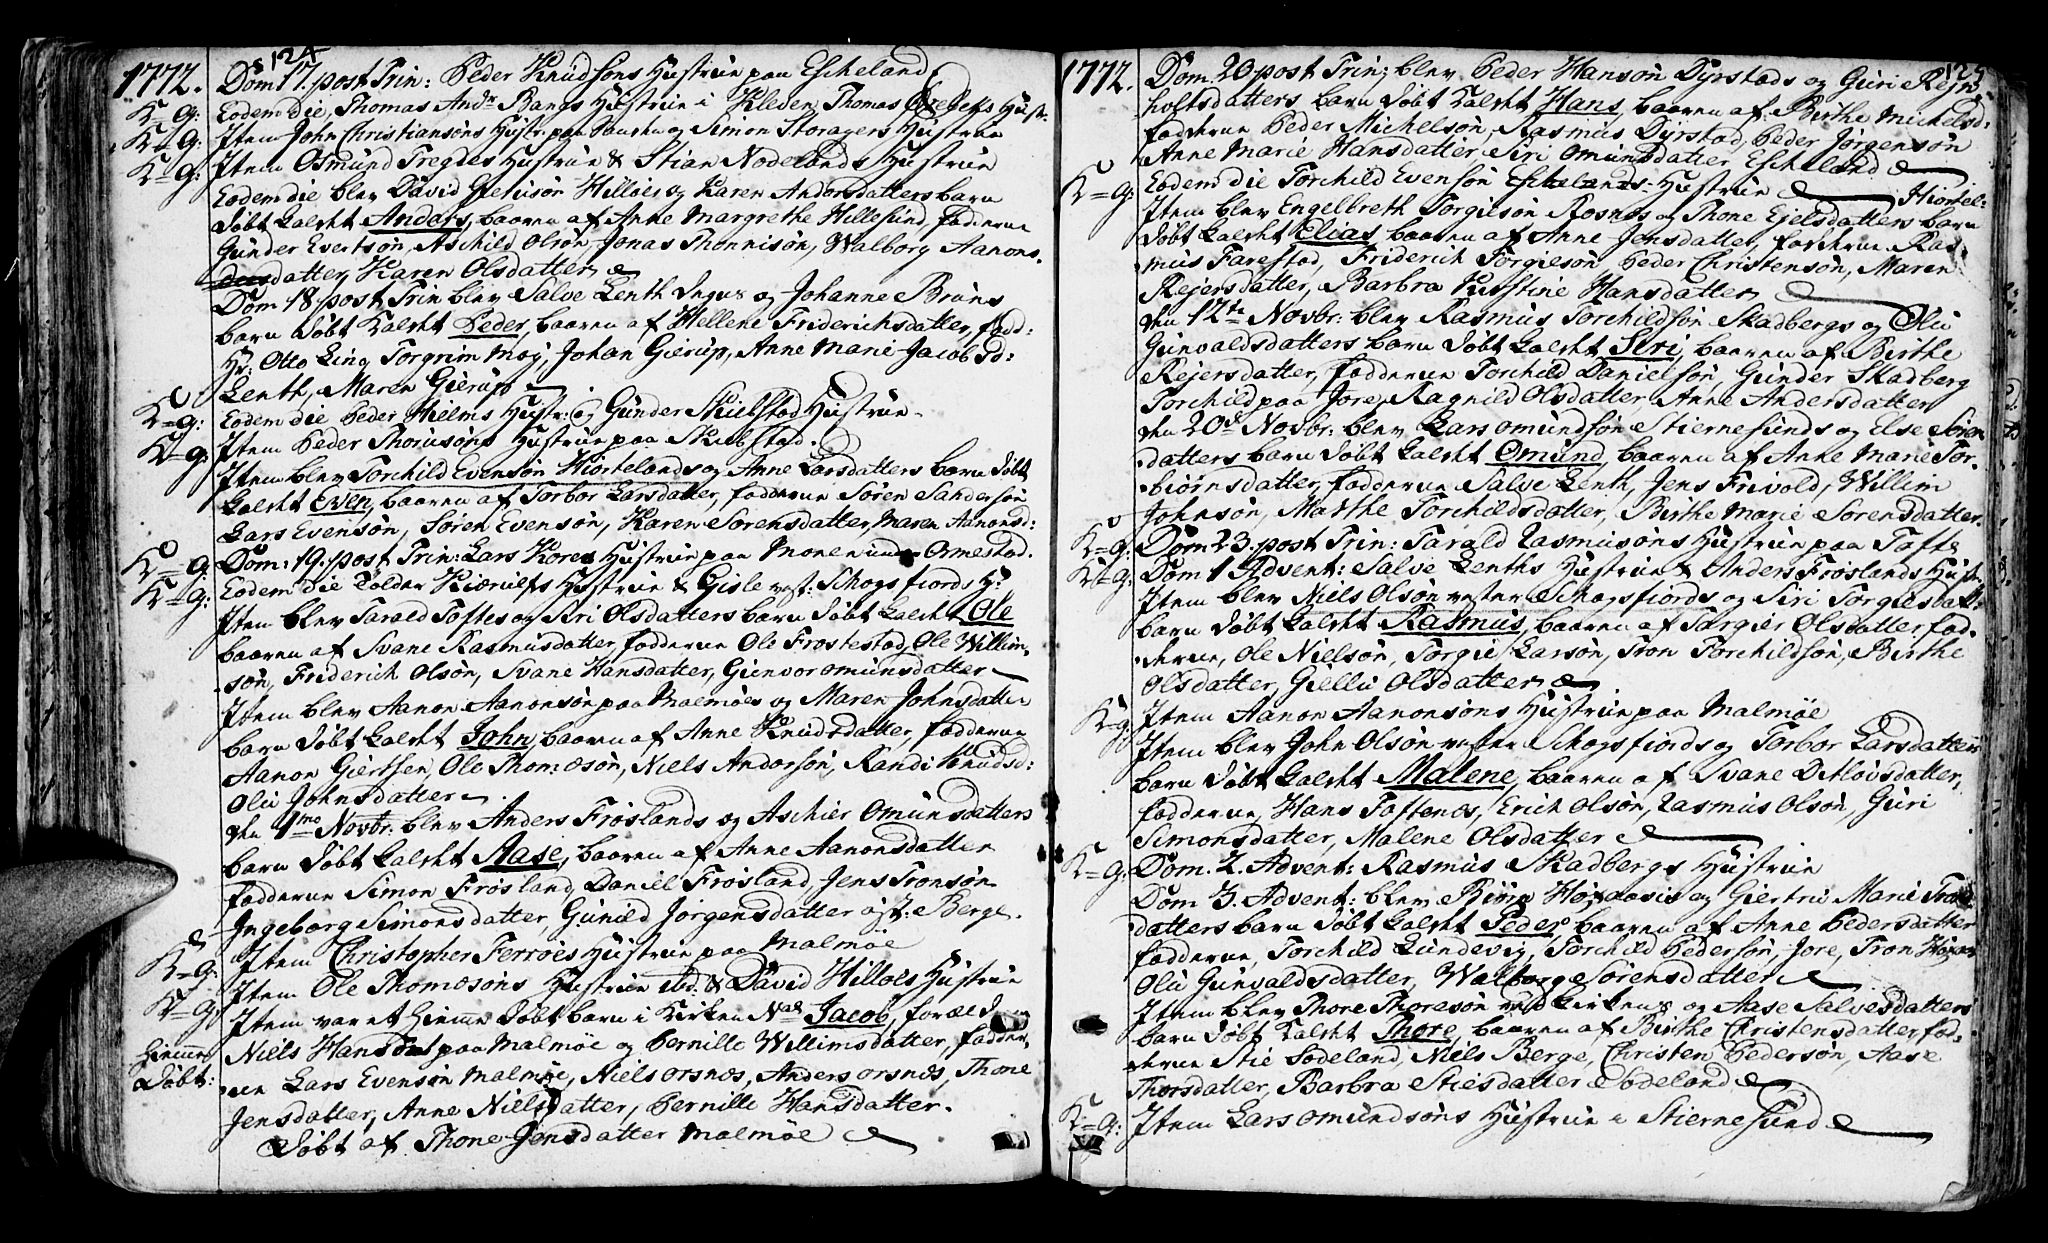 124
1772.
Dom 17. post Trin: Peder Knudsøns Hustrue paa Escheland.
K=g: Eodem die, Thomas Andr Bangs Hustrue i Kleven, Thomas Hustr:
K=g: Item John Christiansøns Hustr: paa og Simon Storagers Hustrue
K=g: Item Osmund Tregdes Hustrue & Stian Nodelands Hustrue
Eodem die blev David Hilløes og Karen Andorsdatters barn
Døbt kaldt Andors, baaren af Anne Margrethe Hillesund, fadderne
Gunder Evertsøn, Aschild Olsøn, Jonas Thønnisøn, Walborg Aanons-
datter, Karen Olsdatter
Dom 18. post Trin blev Salve Lenth og Johanne Bruns
barn Døbt kaldt Peder, baaren af Hellene Friderichsdatter, fadd:
Hr: Otto Ling, Torgrim Moy, Johan Gierup, Anne Marie Jacobsd:
Lenth, Maren Gierup
K=g: Eodem die Peder Hielms Hustr: og Gunder Skiebstad Hustrue
K=g: Item Peder Hustrue paa Skiebstad.
Item blev Torchild Evensøn Hiortelands og Anne Larsdatters barn Døbt
kaldt Even, baaren af Torbor Larsdatter, fadderne Søren Sandersøn
Lars Evensøn, Søren Evensøn, Karen Sorensdatter, Maren Aanonsd:
K=g Dom: 19. post Trin: Lars Kores Hustrue paa Monen under Ormestad.
K=g: Eodem die Kolder Kiærulfs Hustrue & Gisle vest: Schogsfiords H:
Item blev Tarald Toftes og Siri Olsdatters barn Døbt kaldt Ole
baaren af Svane Rasmusdatter, fadderne Ole Frostestad, Ole Willim-
søn, Friderich Olsøn, Svane Hansdatter, Giønvor Omundsdatter
Item blev Aanon Aanonsøn paa Malmøe og Maren Johnsdatter
barn Døbt kaldt John, baaren af Anne Knudsdatter, fadderne
Aanon Giertsen, Ole Thomæsøn, Niels Andorsøn, Randi Knudsd:
Oliv Johnsdatter
den 1mo Novbr: blev Anders Frøslands og Aschier Omundsdatters
barn Døbt kaldt Aase, baaren af Anne Aanonsdatter
fadderne Simon Frøsland, Daniel Frøsland, Jens Tronsøn
Ingeborg Simonsdatter, Gunild Jørgensdatter Berge.
K=g: Item Christopher Ferrøes Hustrue paa Malmøe
K=g: Item Ole Thomæsøns Hustrue ibd: & David Hilløes Hustrue
Item var et Hiemme Døbt barn i Kirken Navl Jacob, forældrene
Hiemme Niels Hansøn paa Malmøe og Pernille Willimsdatter, fadder-
Døbt: ne Lars Evensøn Malmøe, Niels Orsnæs, Anders Orsnæs, Thone
Jensdatter, Anne Nielsdatter, Pernille Hansdatter.
Døbt af Thone Jensdatter Malmøe
125
1772. Dom. 20 post Trin: blev Peder Hansøn Dyrstads og Guri Rejn-
holtsdatters barn Døbt kaldt Hans, baaren af Birthe Michelsd:
fadderne Peder Michelsøn, Rasmus Dyrstad, Peder Jørgensøn
Anne Marie Hansdatter, Siri Omundsdatter Escheland
K=g: Eodem die Torchild Evensøn Eschelands Hustrue Hiortel-
Item blev Engelbreth Torgilsøn Rosnes og Thone Ejelsdatters barn
Døbt kaldt Elias, baaren af Anne Jensdatter, fadderne Ras-
mus Farestad, Friderich Torgiesøn Peder Christensøn, Maren
Rejersdatter, Barbra Kirstine Hansdatter
den 12te Novbr: blev Rasmus Torchildsøn Skadbergs og Oliv
Gunvaldsdatters barn Døbt kaldt Siri, baaren af Birthe
Rejersdatter, fadderne Torchild Danielsøn, Gunder Skadberg
Torchild paa Jore, Ragnild Olsdatter Anne Andersdatter
den 20de Novbr: blev Lars Omundsøn Stiernesunds og Else Sørens-
datters barn Døbt kaldt Omund, baaren af Anne Marie Tor-
biørnsdatter, fadderne Salve Lenth, Jens Frivold, Willim
Johnsøn, Marthe Torchildsdatter, Birthe Marie Sorensdatter.
K=g: Dom 23. post Trin: Tarald Rasmusøns Hustrue paa Tofte
K=g: Dom 1 Advent: Salve Lenths Hustrue & Anders Frøslands Hustr:
Item blev Niels Olsøn vester Schogsfiords og Siri Torgiesdatt:
barn Døbt kaldt Rasmus, baaren af Torgier Olsdatter fad-
derne, Ole Nielsøn, Torgie Larsøn, Tron Torchildsøn, Birthe
Olsdatter, Giellu Olsdatter
K=g: Item Aanon Aanonsøns Hustrue paa Malmøe
Item blev John Olsøn vester Schogsfiords og Torbor Larsdatters
barn Døbt kaldt Malene, baaren af Svane Ditlovsdatter,
fadderne, Hans Toftenæs, Erich Olsøn, Rasmus Olsøn, Guri
Simonsdatter, Malene Olsdatter
K=g: Dom. 2. Advent: Rasmus Skadbergs Hustrue
Dom 3. Advent: blev Biørn og Giertru Marie Trons
datters barn Døbt kaldt Peder baaren af Anne Pedersdatter
fadderne, Torchild Lundevig, Torchild Pedersøn, Jore, Tron
Oliv Gunvaldsdatter, Walborge Sørensdatter
Item blev Thore Thoresøn ved Kirken og Aase Salvesdatters
barn Døbt kaldt Thore, baaren af Birthe Christensdatter fad-
derne Stie Sodeland, Niels Berge, Christen Pedersøn, Aase
Thorsdatter, Barbra Stiesdatter Sodeland
K=g: Item Lars Omundsøns Hustrue i Stiernesund